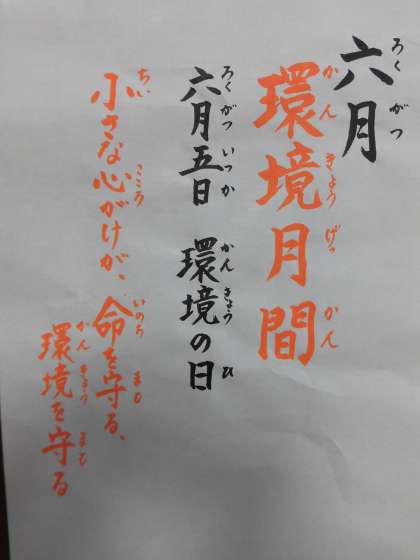 六月
ろくがつ
環境月間
かんきょうげっかん
六月五日 環境の日
ろくがついつか かんきょう ひ
小さな心がけが、命を守る、
ちい こころ いのち まも
環境を守る
かんきょう まも